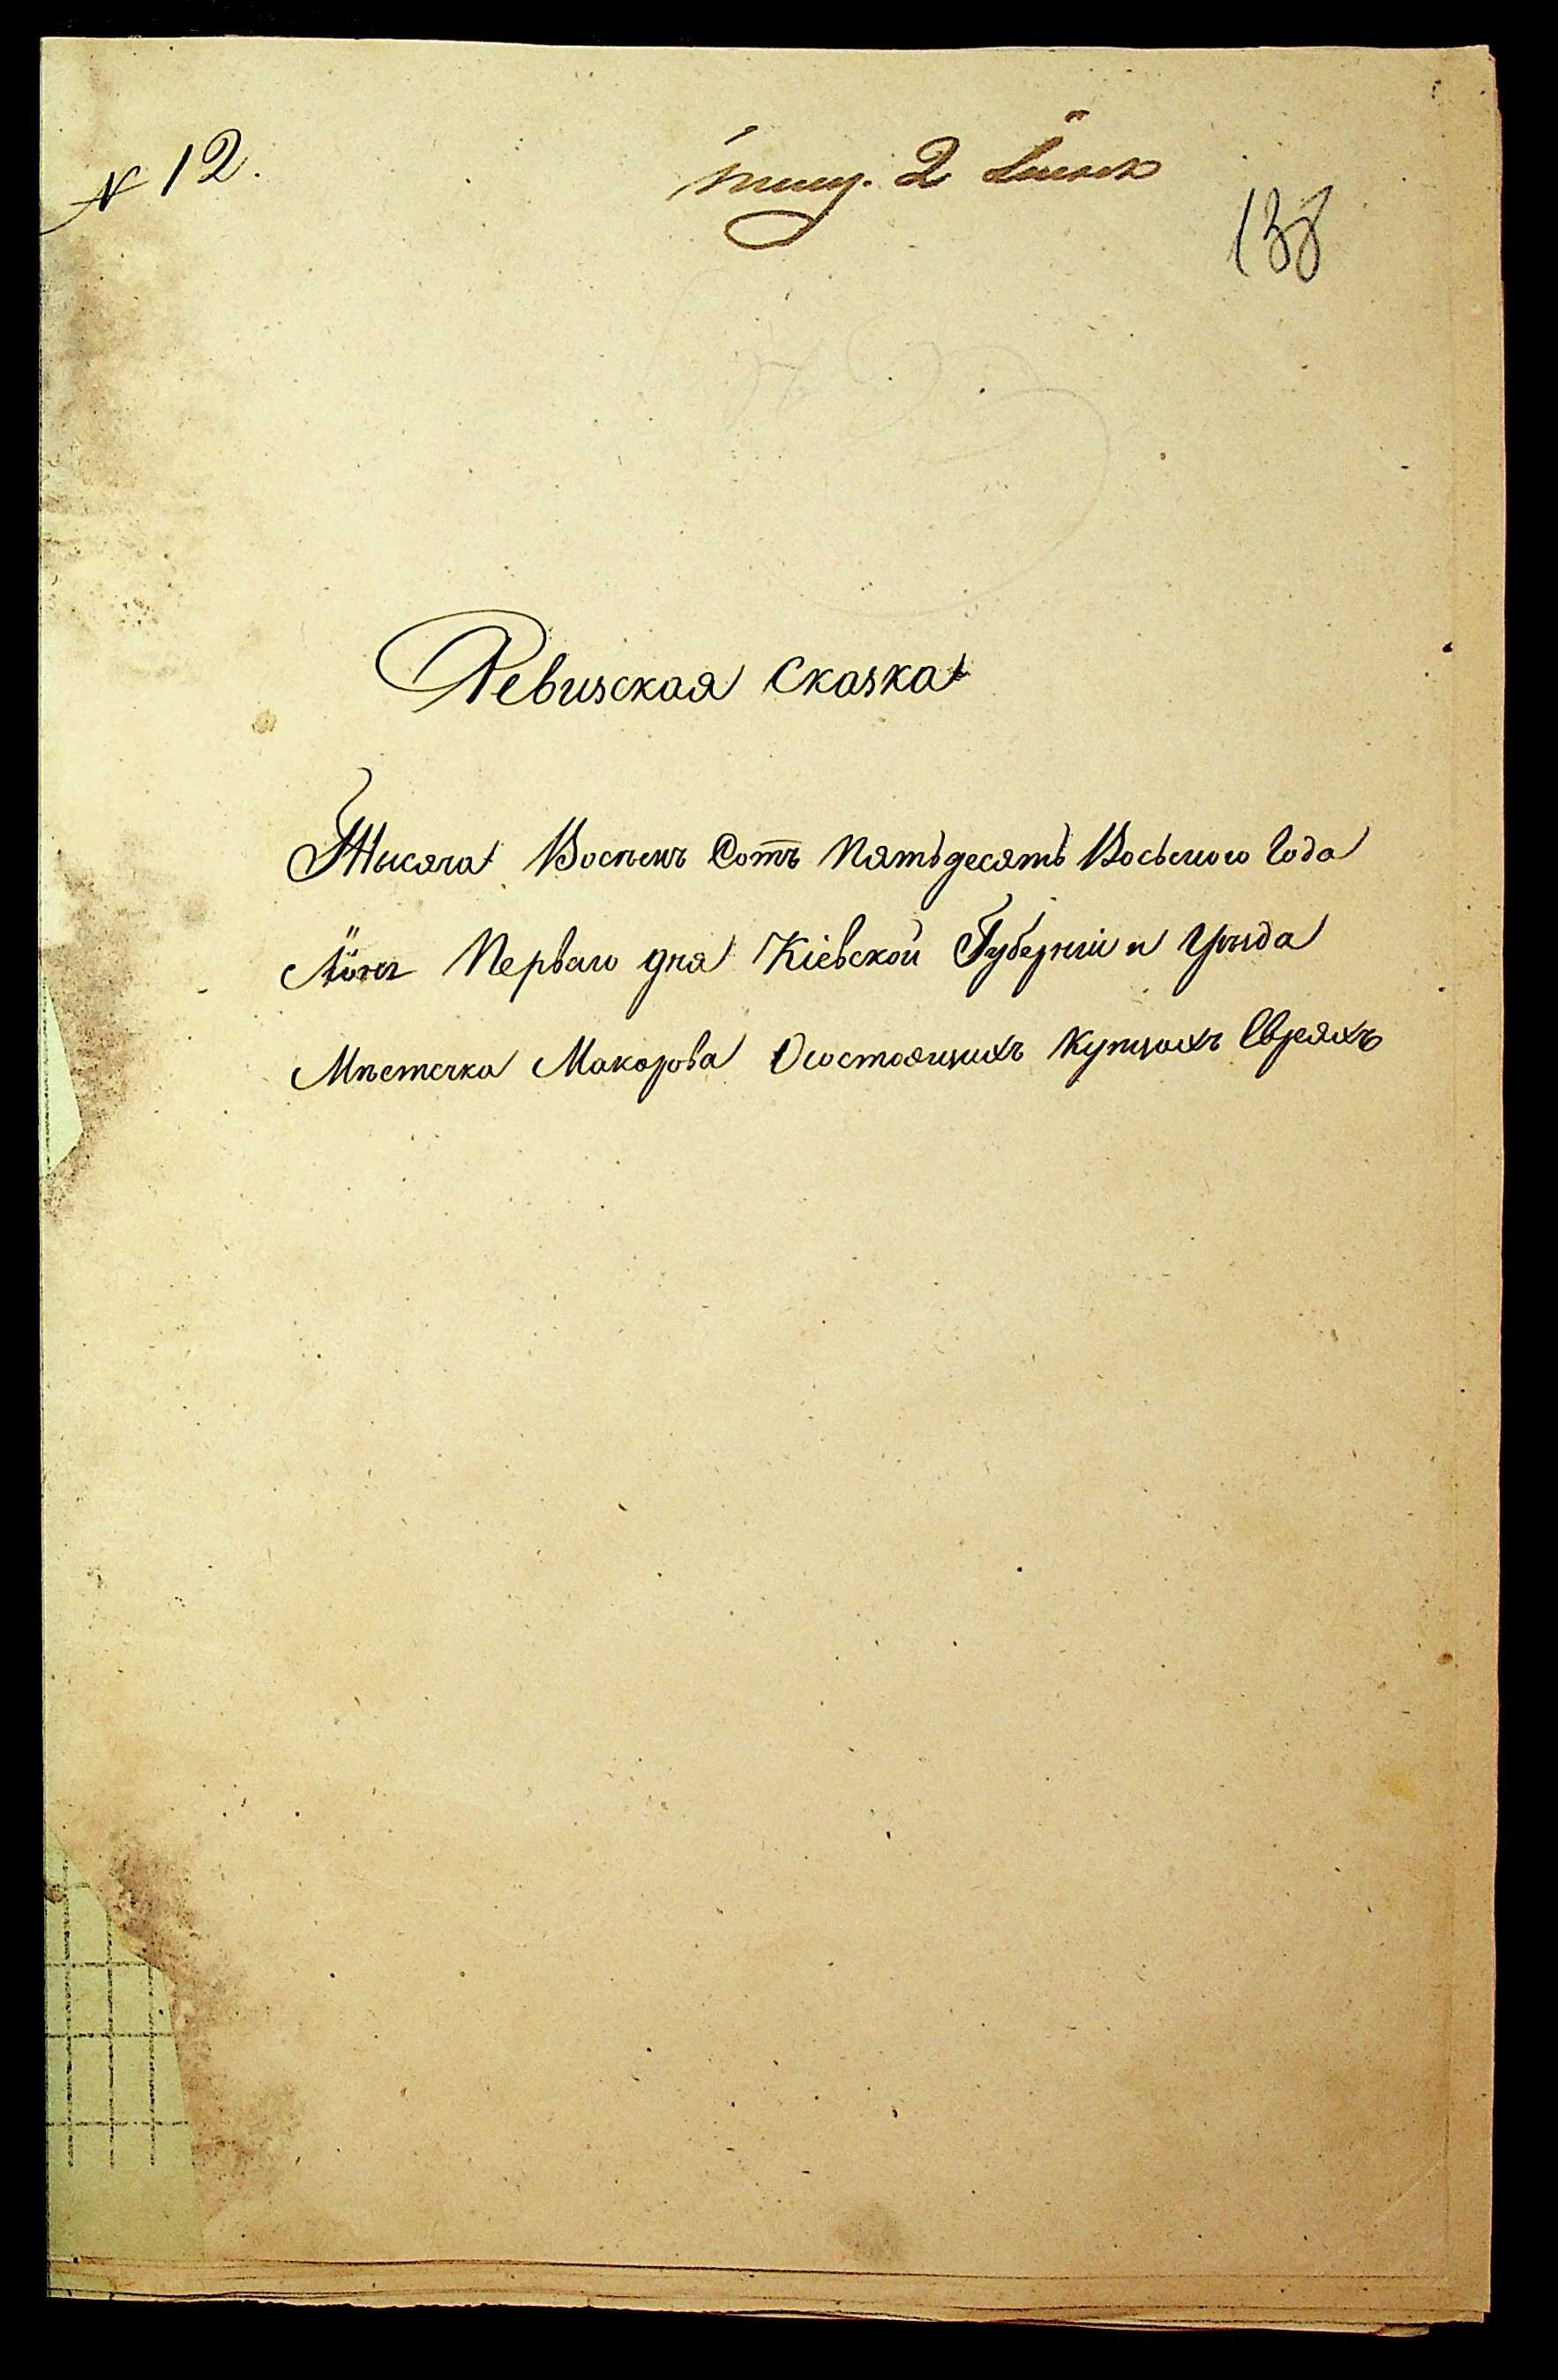 N 12.
2
138
Ревизская Сказка
Тысяча Восемъ Сотъ Пятьдесятъ Восьмого Года
Іюня Перваго дня Кіевской Губерніи и Уѣзда
Мѣстечка Макарова О состоящихъ Купцахъ Евреяхъ